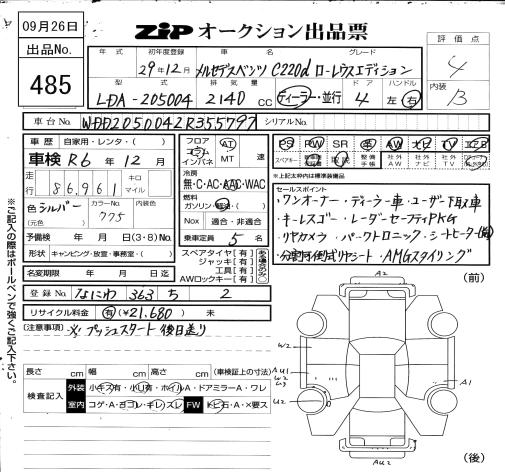 09月26日
出品No.
485
ZiP オークション出品票
年式 初年度登録 車名 グレード
29年12月 メルセデスベンツ C220d ローレウスエディション
型式 排気量 ドア ハンドル
LDA-205004 2140 CC ディーラー・並行 4 左 右
評価点
4
内装
B
車台No. WDD2050042R355797 シリアルNo.
車歴 自家用・レンタ・( )
車検 R6年 12月
走行 86961 キロ マイル
色 シルバー カラーNo. 775
(元色)
予備検 年 月 日 (3・8) No.
形状 キャンピング・放室・事務室・( )
名変期限 年 月 日迄
登録No. なにわ 363 ち 2
リサイクル料金 有 (¥21,680) 未
フロア コラム インパネ AT MT 速
冷房 無・C・AC・AAC・WAC
燃料 ガソリン・軽油・( )
Nox 適合・非適合
乗車定員 5 名
スペアタイヤ【有】
ジャッキ【有】
工具【有】
AWロックキー【有】
PS PW SR 革 AW ナビ TV エアB
スペアキー 取説 整備手帳 社外AW 社外ナビ 社外TV
*上記太枠内は標準装備品
セールスポイント
・ワンオーナー・ディーラー車・ユーザー下取車
・キーレスゴー・レーダーセーフティPKG
・リヤカメラ・パークトロニック・シートヒーター(前)
・分割可倒式リヤシート・AMGスタイリング
(注意事項) ※プッシュスタート後日送り
長さ cm 幅 cm 高さ cm (車検証上の寸法)
検査記入 外装 小キズ有・小凹有・ホイルA・ドアミラーA・ワレ
室内 コゲ・A・ヨゴレ・キレ・スレ FW トビ石・A・×要ス
※ご記入の際はボールペンで強くご記入下さい。
(前)
A2
W2
AU1
W2
U2
A1
AU2
(後)